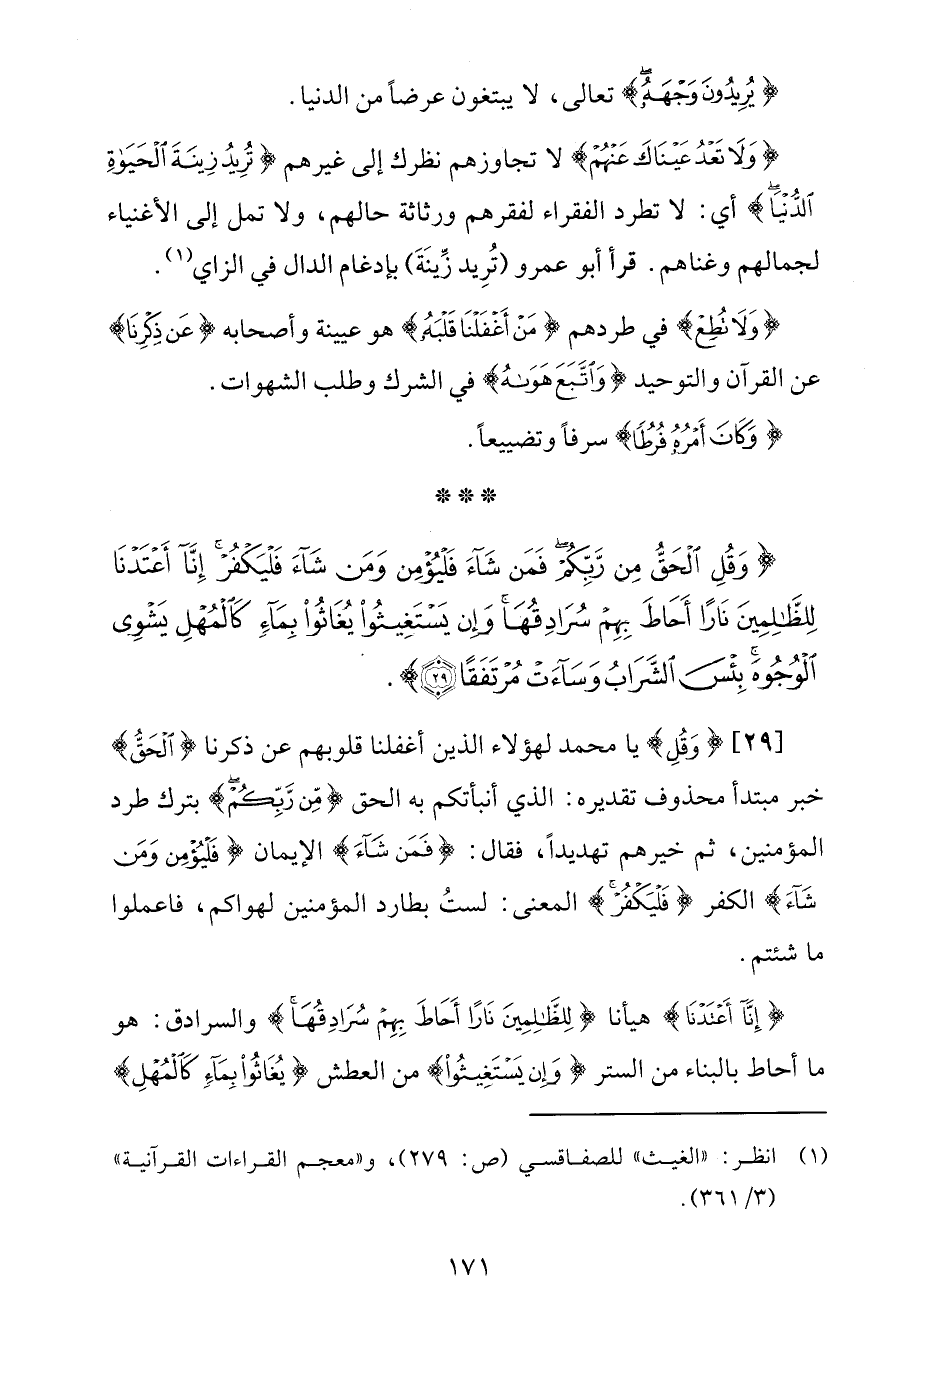 ﴿ يُرِيدُونَ وَجْهَهُۥۖ ﴾ تعالى، لا يبتغون عرضاً من الدنيا.
﴿ وَلَا تَعْدُ عَيْنَاكَ عَنْهُمْ ﴾ لا تجاوزهم نظرك إلى غيرهم ﴿ تُرِيدُ زِينَةَ ٱلْحَيَوٰةِ
ٱلدُّنْيَاۖ ﴾ أي: لا تطرد الفقراء لفقرهم ورثاثة حالهم، ولا تمل إلى الأغنياء
لجمالهم وغناهم. قرأ أبو عمرو (تُرِيد زِّينَةَ) بإدغام الدال في الزاي(١).
﴿ وَلَا نُطِعْ ﴾ في طردهم ﴿ مَنْ أَغْفَلْنَا قَلْبَهُۥ ﴾ هو عيينة وأصحابه ﴿ عَن ذِكْرِنَا ﴾
عن القرآن والتوحيد ﴿ وَٱتَّبَعَ هَوَىٰهُ ﴾ في الشرك وطلب الشهوات.
﴿ وَكَانَ أَمْرُهُۥ فُرُطًا ﴾ سرفاً وتضييعاً.
* * *
﴿ وَقُلِ ٱلْحَقُّ مِن رَّبِّكُمْۖ فَمَن شَآءَ فَلْيُؤْمِن وَمَن شَآءَ فَلْيَكْفُرْۚ إِنَّآ أَعْتَدْنَا
لِلظَّٰلِمِينَ نَارًا أَحَاطَ بِهِمْ سُرَادِقُهَاۚ وَإِن يَسْتَغِيثُوا۟ يُغَاثُوا۟ بِمَآءٍ كَٱلْمُهْلِ يَشْوِى
ٱلْوُجُوهَۚ بِئْسَ ٱلشَّرَابُ وَسَآءَتْ مُرْتَفَقًا ٢٩ ﴾.
[٢٩] ﴿ وَقُلِ ﴾ يا محمد لهؤلاء الذين أغفلنا قلوبهم عن ذكرنا ﴿ ٱلْحَقُّ ﴾
خبر مبتدأ محذوف تقديره: الذي أنبأتكم به الحق ﴿ مِّن رَّبِّكُمْۖ ﴾ بترك طرد
المؤمنين، ثم خيرهم تهديداً، فقال: ﴿ فَمَن شَآءَ ﴾ الإيمان ﴿ فَلْيُؤْمِن وَمَن
شَآءَ ﴾ الكفر ﴿ فَلْيَكْفُرْۚ ﴾ المعنى: لستُ بطارد المؤمنين لهواكم، فاعملوا
ما شئتم.
﴿ إِنَّآ أَعْتَدْنَا ﴾ هيأنا ﴿ لِلظَّٰلِمِينَ نَارًا أَحَاطَ بِهِمْ سُرَادِقُهَاۚ ﴾ والسرادق: هو
ما أحاط بالبناء من الستر ﴿ وَإِن يَسْتَغِيثُوا۟ ﴾ من العطش ﴿ يُغَاثُوا۟ بِمَآءٍ كَٱلْمُهْلِ ﴾
(١) انظر: «الغيث» للصفاقسي (ص: ٢٧٩)، و«معجم القراءات القرآنية»
(٣/ ٣٦١).
١٧١